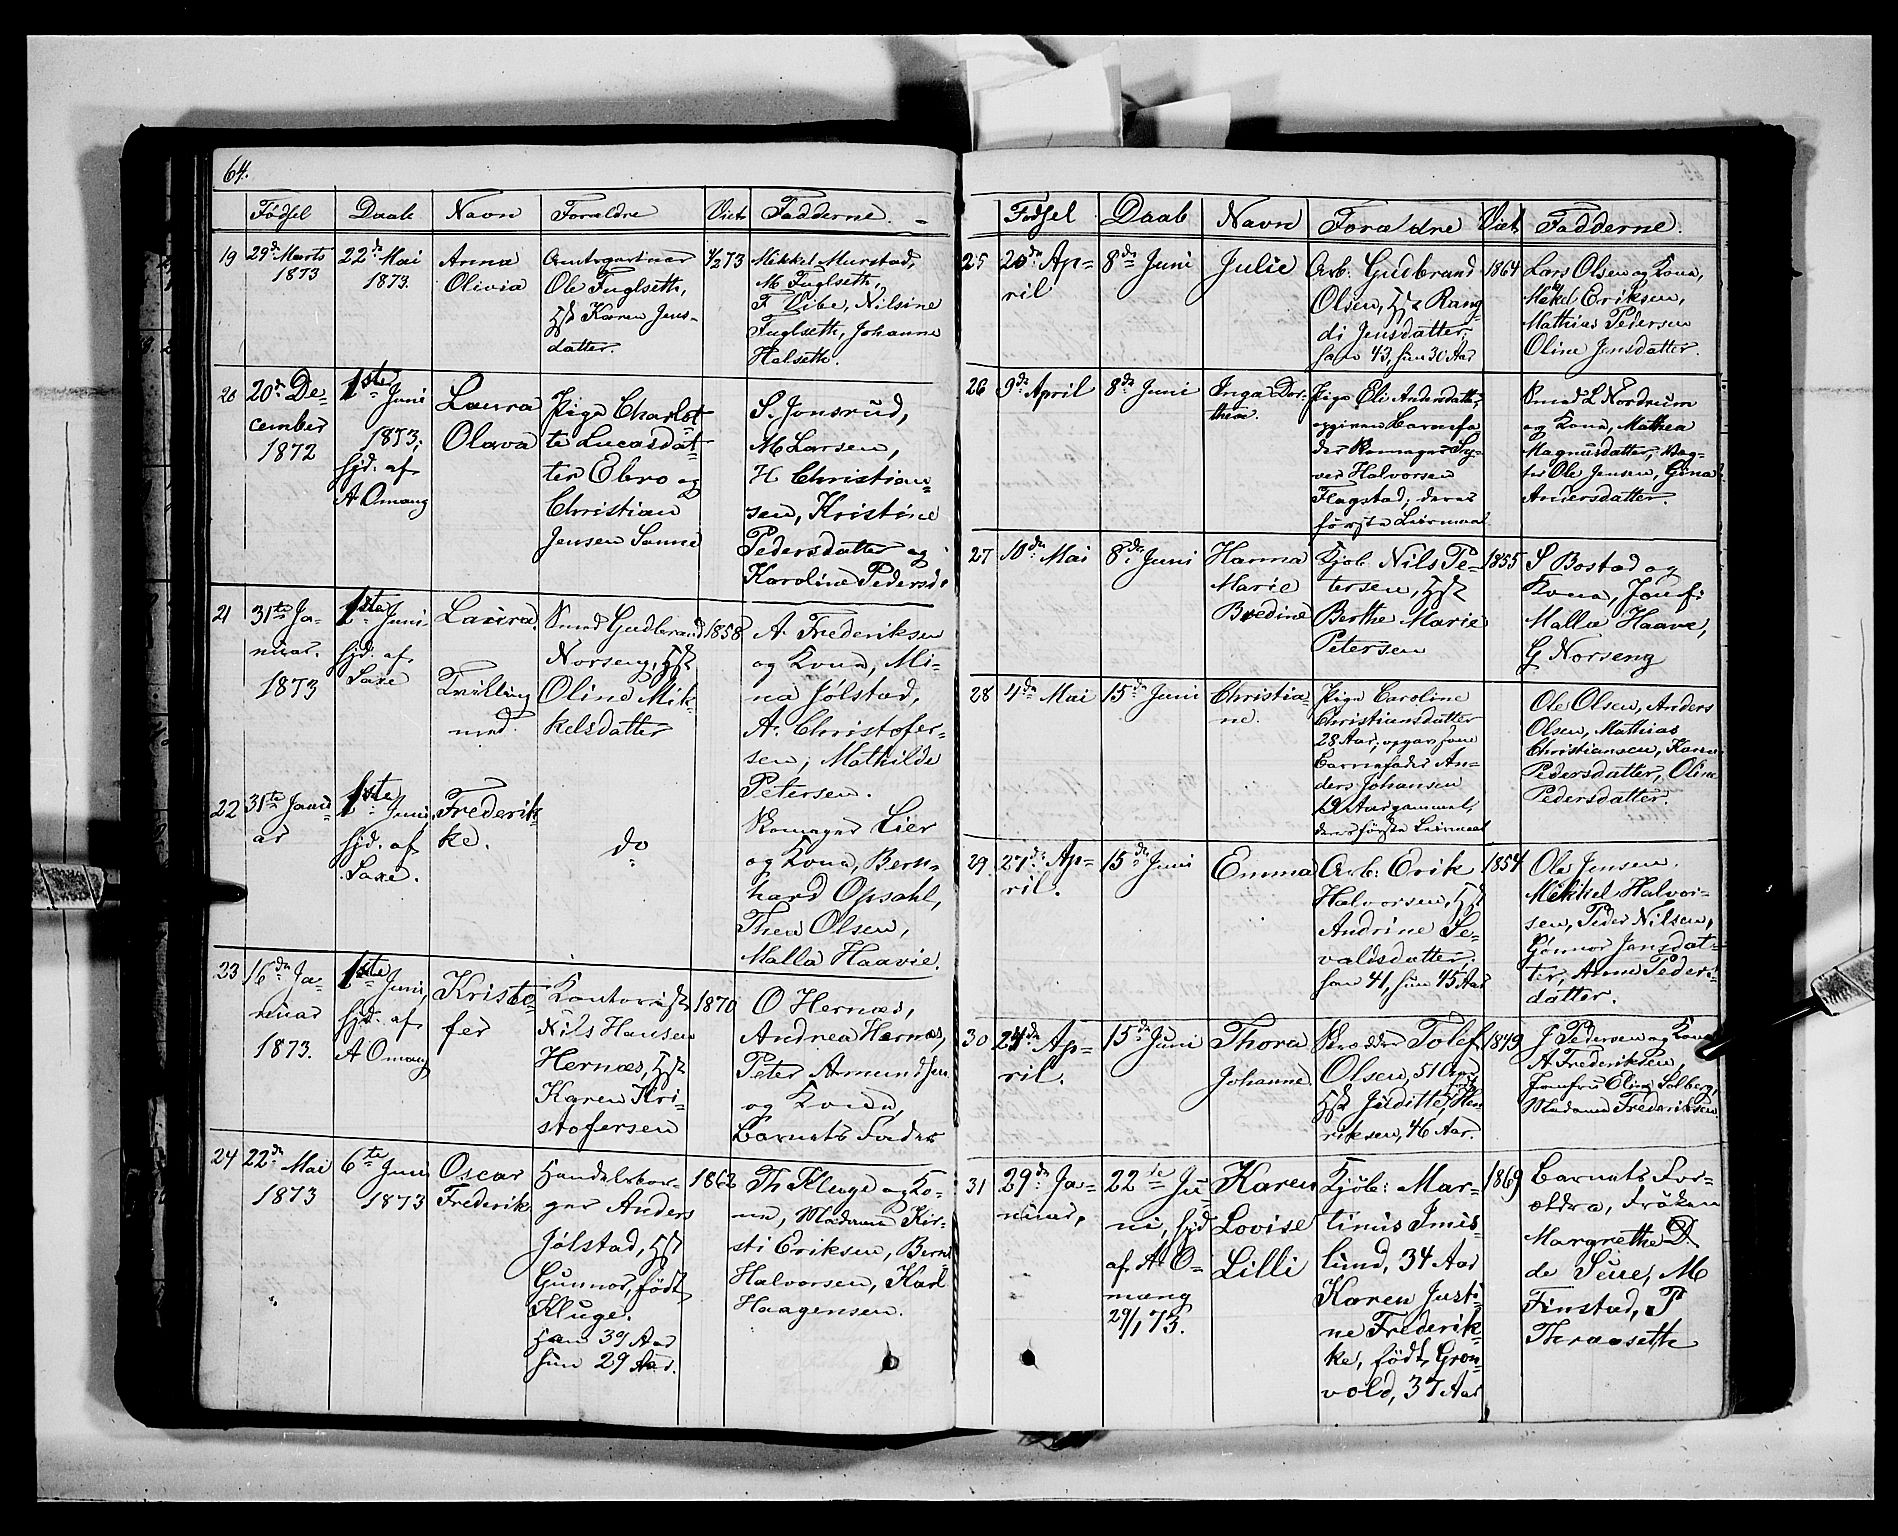 64.
Fødsel Daab Navn Forældre Viet Fadderne.
19 29de Marts 1873
22de Mai 1873.
Anna Olivia
Ole Fuglseth,
Karen Jens-
datter.
4/2 73
Mikkel Murstad,
M Fuglseth,
F Vibe, Nilsine
Fuglseth, Johanne
Halseth.
20 20de De-
cember
1872
1ste Juni
1873;
hjd. af
A Omang
Laura
Olava
Pige Charlot-
te Lucasdat-
ter Ebro og
Christian
Jensen Sanne
S. Jonsrud,
M Larsen,
H Christian-
sen, Kristine
Pedersdatter og
Karoline Pedersd.
21 31te Ja-
nuar.
1873
1ste Juni
hjd. af
Saxe
Laura.
Tvilling
med.
Smed Gudbrand
Norseng,
Oline Mik-
kelsdatter
1858
A. Frederiksen
og Kona, Mi-
na Jølstad,
A. Christofer-
sen, Mathilde
Petersen.
22 31te Janu-
ar
1ste Juni
hjd. af
Saxe.
Frederik-
ke.
do
Skomager Lier
og Kona, Bern-
hard Opsahl,
Thea Olsen,
Malla Haavie.
23 16de Ja-
nuar
1873.
1ste Juni,
hjd. af
A Omang
Kristo-
fer
Kontorist
Nils Hansen
Hernæs,
Karen Kri-
stofersen
1870
O Hernæs,
Andrea Hernæs,
Peter Amundsen
og Kona,
Barnets Fader
24 22de Mai
1873
6te Juni
1873
Oscar
Frederik
Handelsbor-
ger Anders
Jølstad,
Gunnor, født
Kluge.
Han 39 Aar
hun 29 Aar.
1862
Th Kluge og Ko-
na, Madame Kir-
sti Eriksen, Bernt
Halvorsen, Karl
Haagensen.
Fødsel Daab Navn Forældre Viet Fadderne.
25 20de Ap-
ril
8de Juni
Julie
Arb: Gudbrand
Olsen, Rang-
di Jensdatter,
han 43, hun 30 Aar
1864
Lars Olsen og Kona,
Mikel Eriksen,
Mathias Pedersen
Oline Jensdatter.
26 9de April
8de Juni
Inga Dor-
thea
Pige Eli Andersdatter,
opgiven Barnefa-
der Skomager Sy-
ver Halvorsen
Flagstad; deres
første Leiermaal
Smed L Nordrum
og Kona, Mathea
Magnusdatter,
Ole Jensen, Gina
Andersdatter.
27 10de Mai
8de Juni
Hanna
Marie
Bredine
Kjøb. Nils Pe-
tersen,
Berthe Marie
Petersen
1855
S Bostad og
Kona, Jomf:
Malla Haave,
G Norseng
28 4de Mai
15de Juni
Christia-
ne.
Pige Caroline
Christiansdatter
28 Aar, opgiven
Barnefader An-
ders Johansen
19 Aar gammel,
deres første Leiermaal
Ole Olsen, Anders
Olsen, Mathias
Christiansen, Karen
Pedersdatter, Oline
Pedersdatter.
29 27de Ap-
ril.
15de Juni
Emma
Arb: Erik
Halvorsen,
Andrine Se-
valdsdatter,
han 41, hun 45 Aar
1854
Ole Jensen.
Mikkel Halvor-
sen, Peder Nilsen,
Gønnor Jensdat-
ter, Anne Peders-
datter.
30 24de Ap-
ril.
15de Juni
Thora
Johanne.
Skrædder Tolef
Olsen, 51 Aar
Juditte, født Hen-
riksen, 46 Aar.
1849
J Pedersen og Kona
A Frederiksen,
Jomfru Elina Solberg,
Madame Frederiksen
31 29de Ja-
nuar,
22de Ju-
ni, hjd
af A O-
mang
29/1 73.
Karen
Lovise
Lilli
Kjøb: Mar-
tinus Imis-
lund, 34 Aar
Karen Justi-
ne Frederik-
ke, født Grøn-
vold, 37 Aar
1869
Barnets For-
ældre, Frøken
Margrethe D
de Seue, M
Finstad, P
Thraaseth